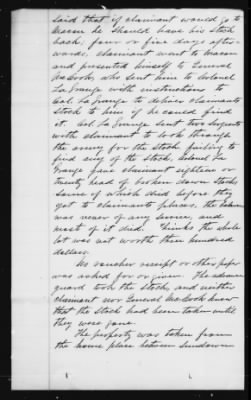 said that if claimant would go to
Macon he should have his stock
back, four or five days after-
wards, claimant went to Macon
and presented himself to General
McCook, who sent him to Colonel
LaGrange with instructions to
Col. LaGrange to deliver claimants
stock to him if he could find
it. Col LaGrange sent two sergeants
with claimant to look through
the army for the stock, failing to
find any of the stock, Colonel La
Grange gave claimant eighteen or
twenty head of broken down stock
some of which died before they
got to claimants place, the balance
was never of any service, and
most of it died. Thinks the whole
lot was not worth three hundred
dollars.
No voucher receipt or other paper
was asked for or given. The advance
guard took the stock, and neither
claimant nor General McCook knew
that the stock had been taken until
they were gone.
The property was taken from
the home place between sundown